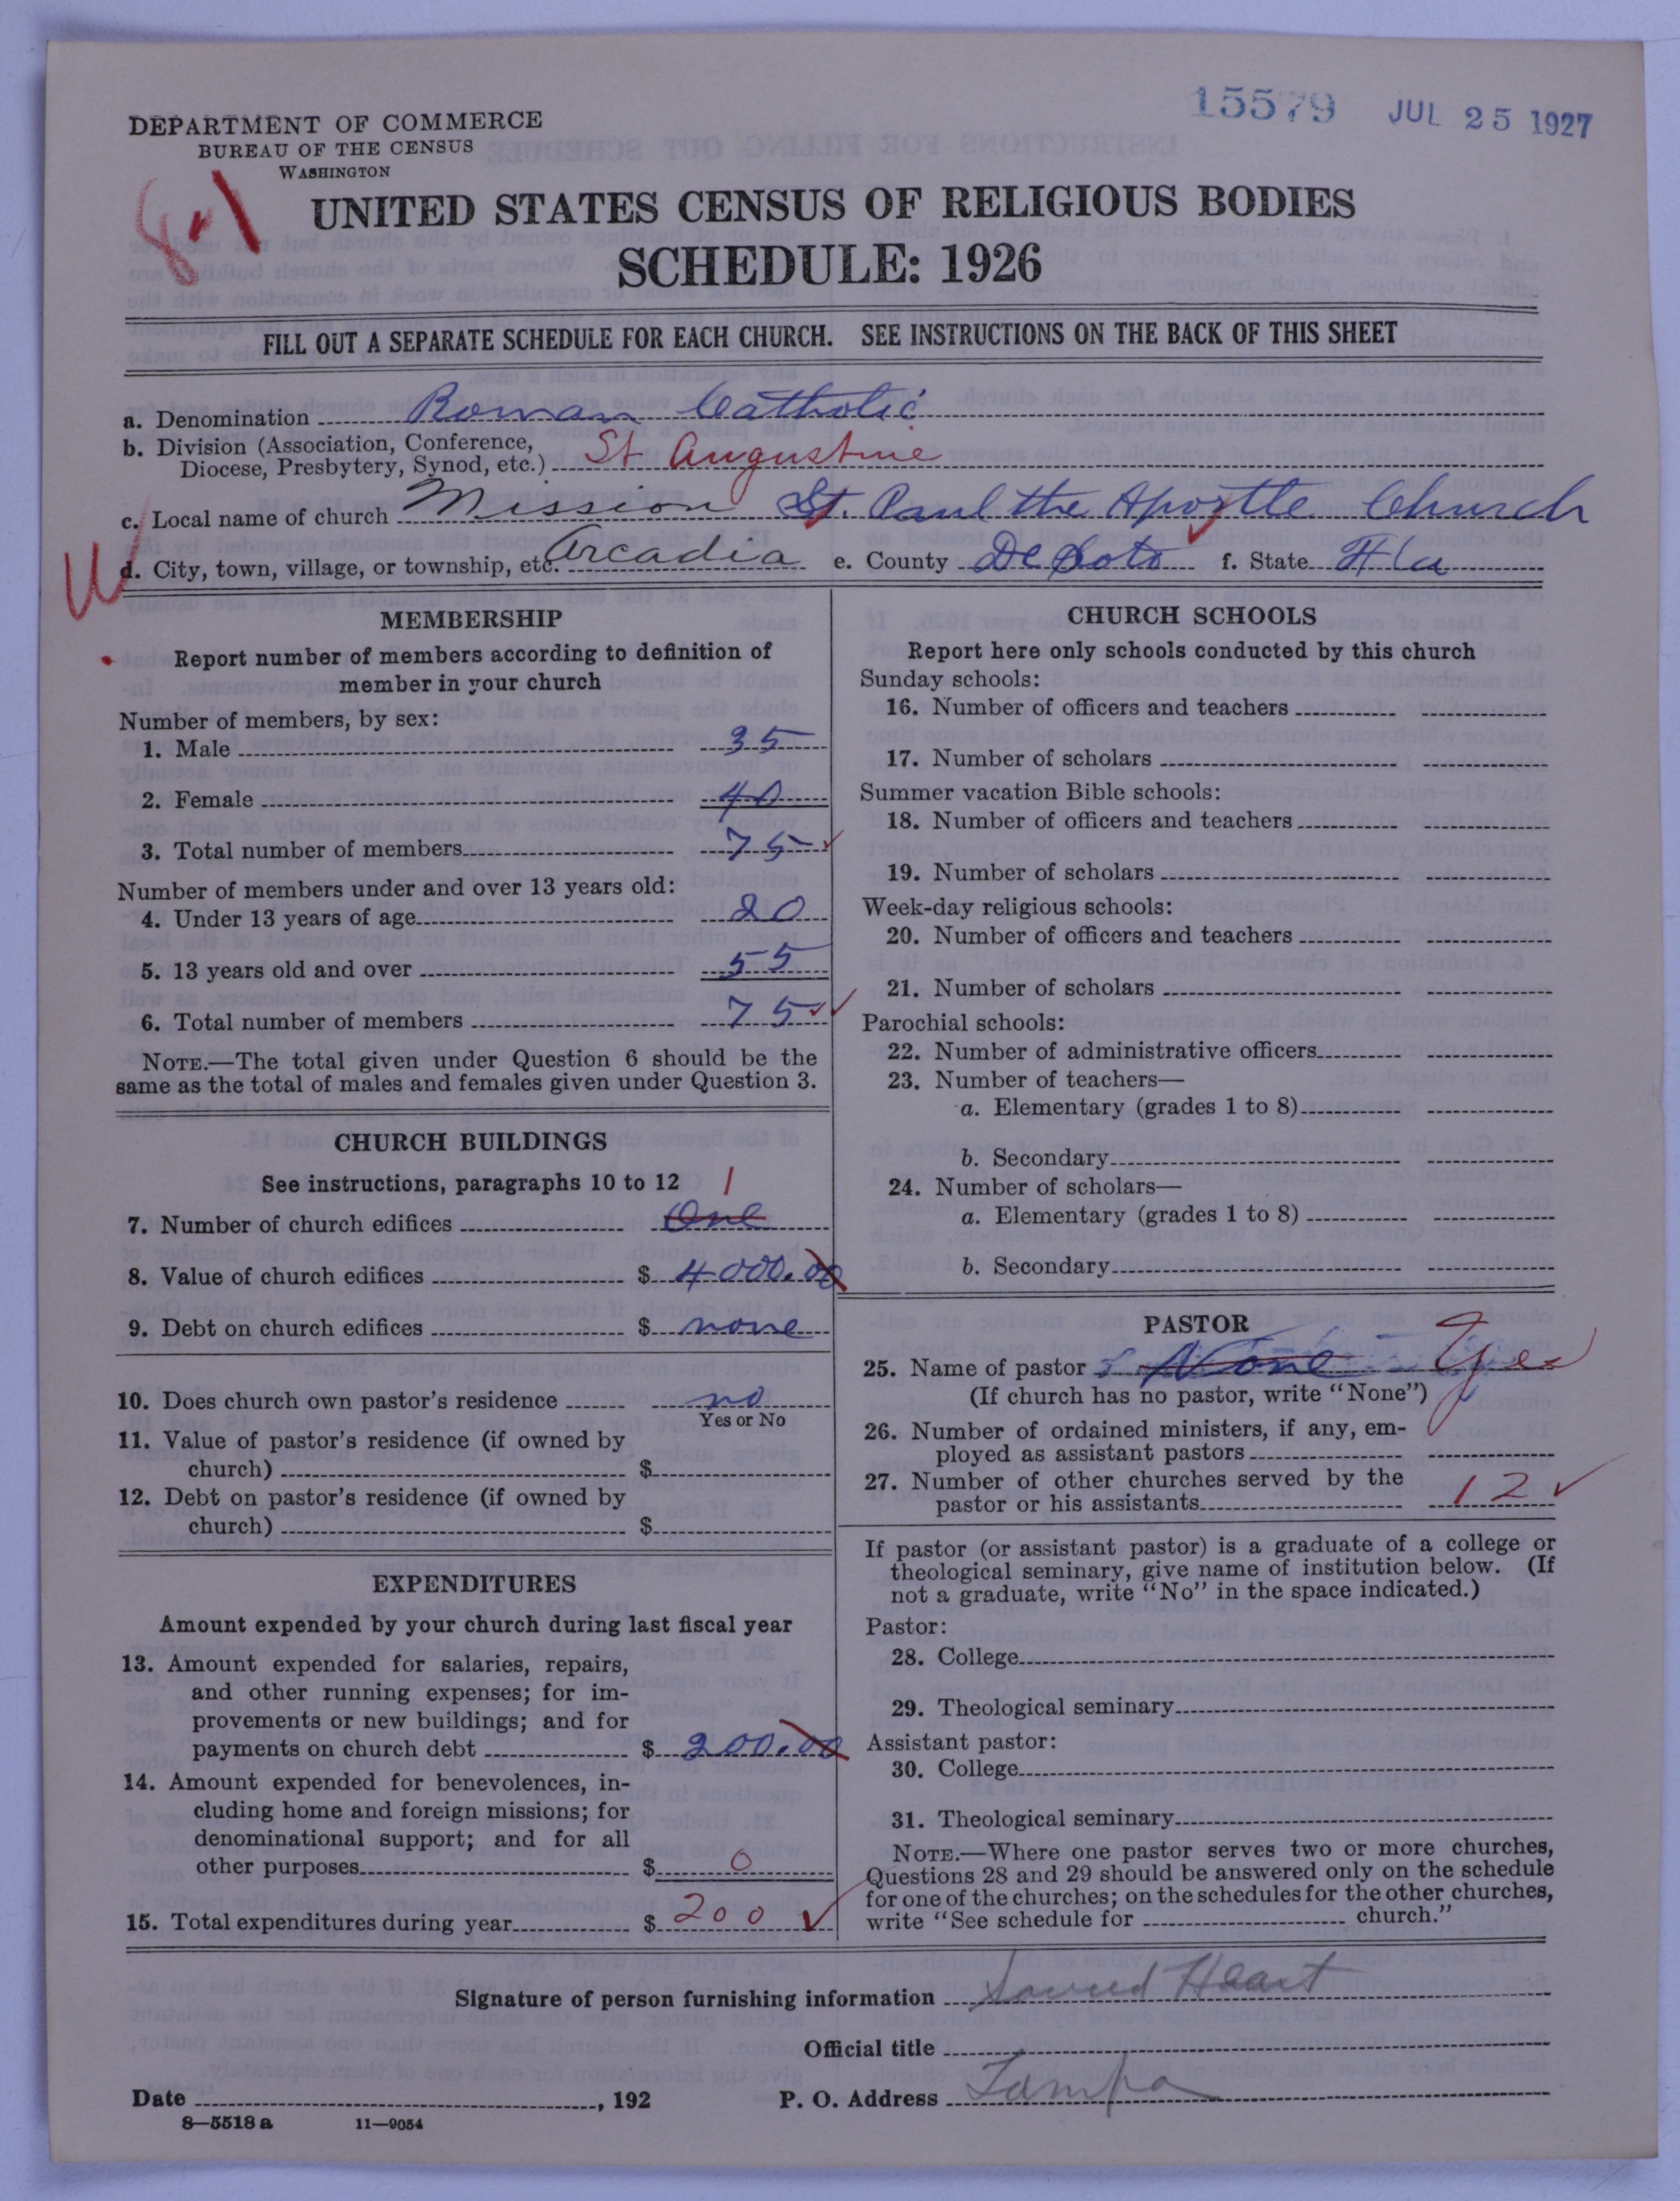 15579 JUL 25 1927
DEPARTMENT OF COMMERCE
BUREAU OF THE CENSUS
WASHINGTON
8-1
UNITED STATES CENSUS OF RELIGIOUS BODIES
SCHEDULE: 1926
FILL OUT A SEPARATE SCHEDULE FOR EACH CHURCH. SEE INSTRUCTIONS ON THE BACK OF THIS SHEET
a. Denomination Roman Catholic
b. Division (Association, Conference,
Diocese, Presbytery, Synod, etc.) St Augustine
c. Local name of church Mission St. Paul the Apostle Church
d. City, town, village, or township, etc. Arcadia e. County De Soto f. State Fla
MEMBERSHIP
Report number of members according to definition of
member in your church
Number of members, by sex:
1. Male 35
2. Female 40
3. Total number of members 75
Number of members under and over 13 years old:
4. Under 13 years of age 20
5. 13 years old and over 55
6. Total number of members 75
NOTE.—The total given under Question 6 should be the
same as the total of males and females given under Question 3.
CHURCH BUILDINGS
See instructions, paragraphs 10 to 12 1
7. Number of church edifices One
8. Value of church edifices $ 4000.00
9. Debt on church edifices $ none
10. Does church own pastor's residence no
Yes or No
11. Value of pastor's residence (if owned by
church) $
12. Debt on pastor's residence (if owned by
church) $
EXPENDITURES
Amount expended by your church during last fiscal year
13. Amount expended for salaries, repairs,
and other running expenses; for im-
provements or new buildings; and for
payments on church debt $ 200.00
14. Amount expended for benevolences, in-
cluding home and foreign missions; for
denominational support; and for all
other purposes $ 0
15. Total expenditures during year $ 200
CHURCH SCHOOLS
Report here only schools conducted by this church
Sunday schools:
16. Number of officers and teachers
17. Number of scholars
Summer vacation Bible schools:
18. Number of officers and teachers
19. Number of scholars
Week-day religious schools:
20. Number of officers and teachers
21. Number of scholars
Parochial schools:
22. Number of administrative officers
23. Number of teachers—
a. Elementary (grades 1 to 8)
b. Secondary
24. Number of scholars—
a. Elementary (grades 1 to 8)
b. Secondary
PASTOR
25. Name of pastor None Yes
(If church has no pastor, write "None")
26. Number of ordained ministers, if any, em-
ployed as assistant pastors
27. Number of other churches served by the
pastor or his assistants 12
If pastor (or assistant pastor) is a graduate of a college or
theological seminary, give name of institution below. (If
not a graduate, write "No" in the space indicated.)
Pastor:
28. College
29. Theological seminary
Assistant pastor:
30. College
31. Theological seminary
NOTE.—Where one pastor serves two or more churches,
Questions 28 and 29 should be answered only on the schedule
for one of the churches; on the schedules for the other churches,
write "See schedule for church."
Signature of person furnishing information Sacred Heart
Official title
Date , 192 P. O. Address Tampa
8—5518 a 11—9054